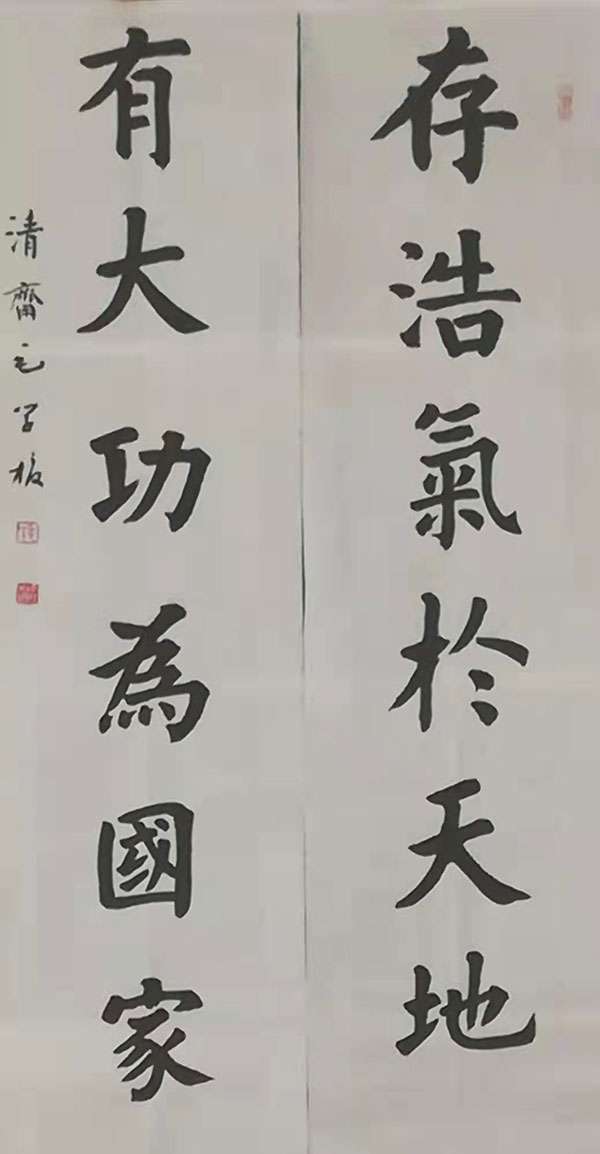 存浩氣於天地
有大功為國家
清齋毛学振